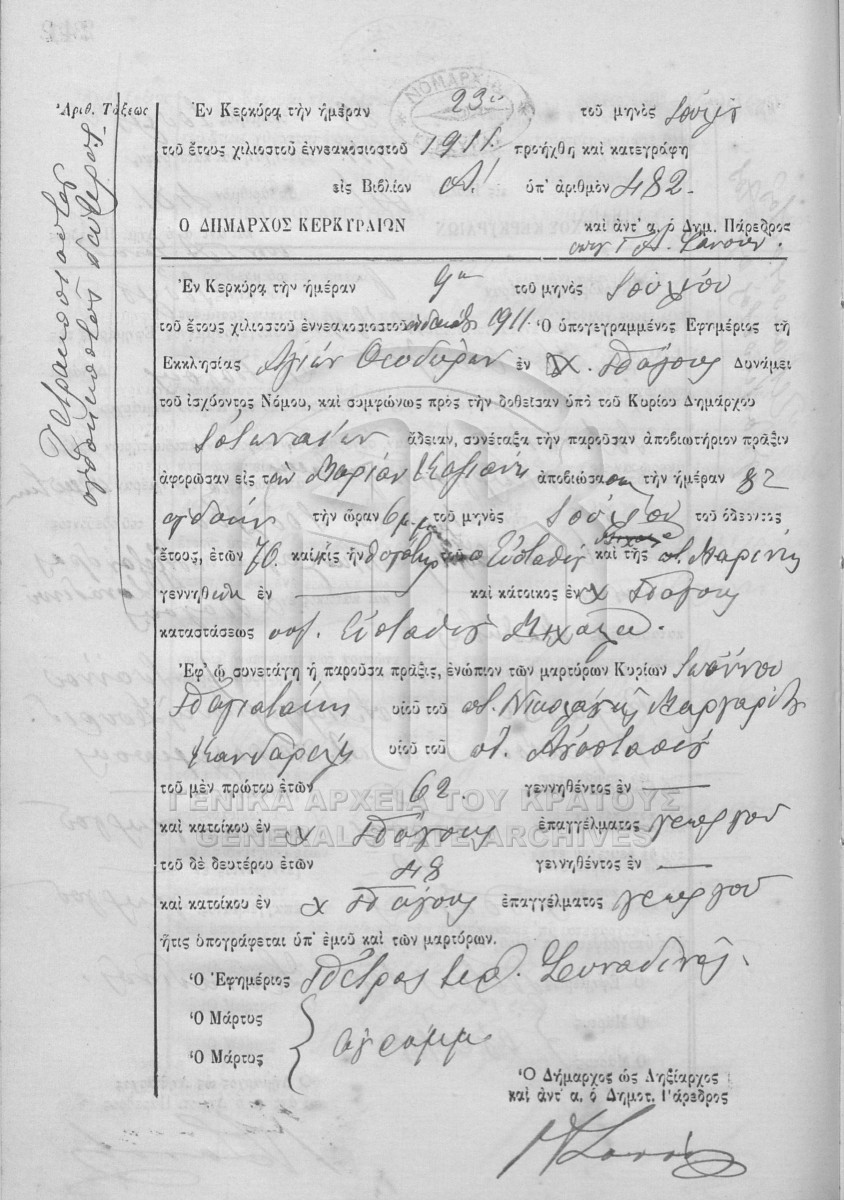 Ἀριθ. Τάξεως
Τετρακόσιοστος
ὀγδοηκοστὸς δεύτερος
ΝΟΜΑΡΧΙΑ
Ἐν Κερκύρᾳ τὴν ἡμέραν 23 τοῦ μηνὸς Ἰουλίου
τοῦ ἔτους χιλιοστοῦ ἐννεακοσιοστοῦ 1911 προήχθη καὶ κατεγράφη
εἰς Βιβλίον Α! ὑπ' ἀριθμὸν 482-
Ο ΔΗΜΑΡΧΟΣ ΚΕΡΚΥΡΑΙΩΝ καὶ ἀντ' α. ὁ Δημ. Πάρεδρος
Ἐν Κερκύρᾳ τὴν ἡμέραν 9η τοῦ μηνὸς Ἰουλίου
τοῦ ἔτους χιλιοστοῦ ἐννεακοσιοστοῦ ἑνδεκάτου 1911. Ὁ ὑπογεγραμμένος Ἐφημέριος τῆς
Ἐκκλησίας Ἁγίων Θεοδώρων ἐν χ. Πάγους Δυνάμει
τοῦ ἰσχύοντος Νόμου, καὶ συμφώνως πρὸς τὴν δοθεῖσαν ὑπὸ τοῦ Κυρίου Δημάρχου
ἄδειαν, συνέταξα τὴν παροῦσαν ἀποβιωτήριον πρᾶξιν
ἀφορῶσαν εἰς τὴν Μαρίαν ἀποβιώσασαν τὴν ἡμέραν 8η
ὀγδόην τὴν ὥραν 6 μ.μ. τοῦ μηνὸς Ἰουλίου τοῦ ὁδεύοντος
ἔτους, ἐτῶν 70 καὶ ἥτις ἦν θυγάτηρ τοῦ Εὐσταθίου καὶ τῆς π. Μαρίνης
γεννηθεῖσα ἐν — καὶ κάτοικος ἐν χ Πάγους
καταστάσεως συζ. Εὐσταθίου Μιχαλᾶ.
Ἐφ' ᾧ συνετάγη ἡ παροῦσα πρᾶξις, ἐνώπιον τῶν μαρτύρων Κυρίων Ἰωάννου
Παγιατάκη υἱοῦ τοῦ π. Νικολάου κ Μαργαρίτη
Κανδαρέλη υἱοῦ τοῦ π. Ἀναστασίου
τοῦ μὲν πρώτου ἐτῶν 62 γεννηθέντος ἐν —
ΓΕΝΙΚΑ ΑΡΧΕΙΑ ΤΟΥ ΚΡΑΤΟΥΣ
καὶ κατοίκου ἐν χ Πάγους ἐπαγγέλματος γεωργοῦ
GENERAL STATE ARCHIVES
τοῦ δὲ δευτέρου ἐτῶν 48 γεννηθέντος ἐν —
καὶ κατοίκου ἐν χ Πάγους ἐπαγγέλματος γεωργοῦ
ἥτις ὑπογράφεται ὑπ' ἐμοῦ καὶ τῶν μαρτύρων.
Ὁ Ἐφημέριος Πέτρος ἱερ. Συναδινός.
Ὁ Μάρτυς
Ὁ Μάρτυς
ἀγράμμ
Ὁ Δήμαρχος ὡς Ληξίαρχος
καὶ ἀντ' α, ὁ Δημοτ. Πάρεδρος